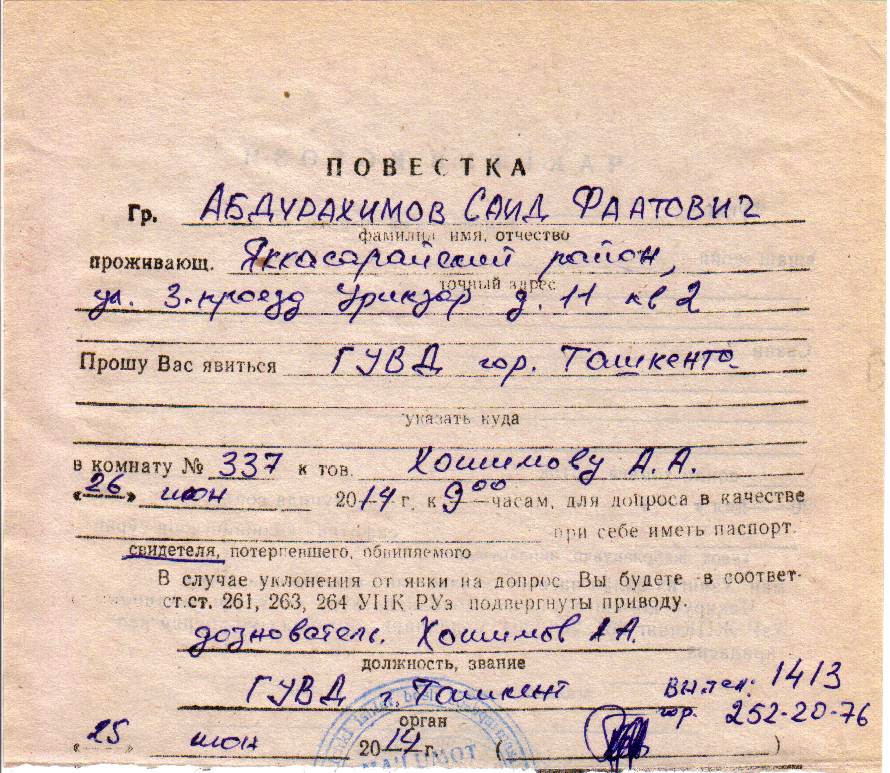 ПОВЕСТКА
Гр. АБДУРАХИМОВ САИД ФААТОВИЧ
фамилия имя, отчество
проживающ. Яккасарайский район,
точный адрес
ул. 3-проезд Урикзор д. 11 кв 2
Прошу Вас явиться ГУВД гор. Ташкента
указать куда
в комнату № 337 к тов. Хошимову А.А.
«26» июн 2014 г. к 9⁰⁰ часам, для допроса в качестве
при себе иметь паспорт.
свидетеля, потерпевшего, обвиняемого
В случае уклонения от явки на допрос Вы будете в соответ-
ст.ст. 261, 263, 264 УПК РУз подвергнуты приводу.
дознователь. Хошимов А.А.
должность, звание
ГУВД г. Ташкент
орган
Вн.тел: 1413
гор. 252-20-76
«25 июн 2014 г. ( )